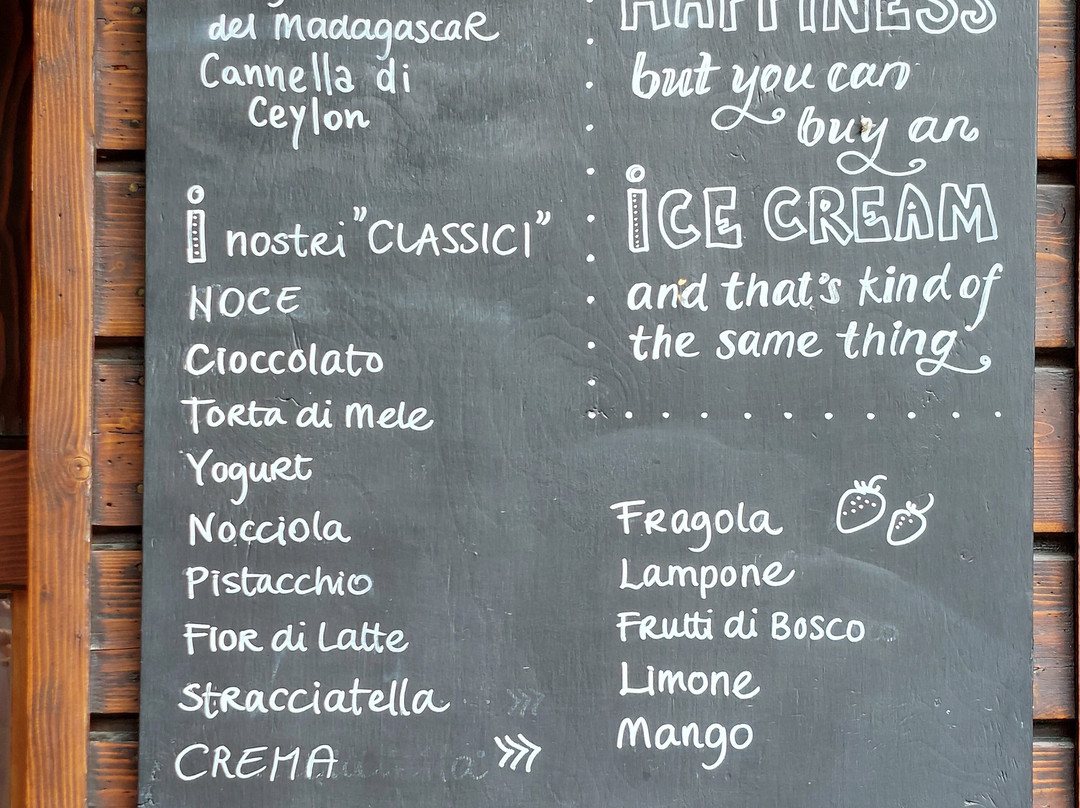 del Madagascar
Cannella di
Ceylon
i nostri "CLASSICI"
NOCE
Cioccolato
Torta di Mele
Yogurt
Nocciola
Pistacchio
Fior di Latte
Stracciatella
CREMA >>>
HAPPINESS
but you can
buy an
iCE CREAM
and that's kind of
the same thing
Fragola
Lampone
Frutti di Bosco
Limone
Mango